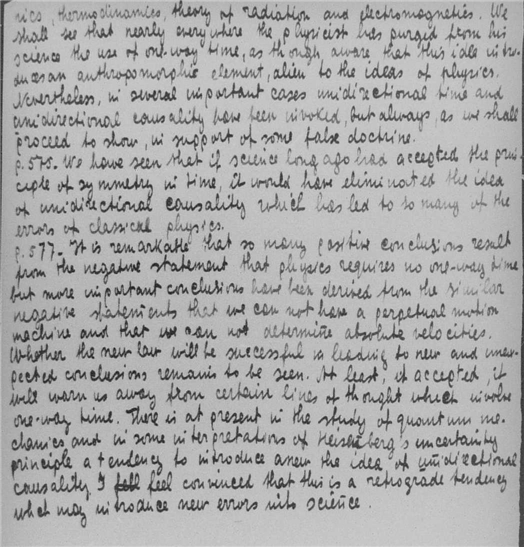 nics, thermodynamics, theory of radiation and electromagnetics. We
shall see that nearly everywhere the physicist has purged from his
science the use of one-way time, as though aware that this idle intro-
duces an anthropomorphic element, alien to the ideas of physics.
Nevertheless, in several important cases unidirectional time and
unidirectional causality have been invoked, but always, as we shall
proceed to show, in support of some false doctrine.
p.575. We have seen that if science long ago had accepted the prin-
ciple of symmetry in time, it would have eliminated the idea
of unidirectional causality which has led to so many of the
errors of classical physics.
p.577- It is remarkable that so many positive conclusions result
from the negative statement that physics requires no one-way time
but more important conclusions have been derived from the similar
negative statements that we can not have a perpetual motion
machine and that we can not determine absolute velocities.
Whether the new law will be successful in leading to new and unex-
pected conclusions remains to be seen. At least, if accepted, it
will warn us away from certain lines of thought which involve
one-way time. There is at present in the study of quantum me-
chanics and in some interpretations of Heisenberg's uncertainty
principle a tendency to introduce anew the idea of unidirectional
causality. I feel convinced that this is a retrograde tendency
which may introduce new errors into science.